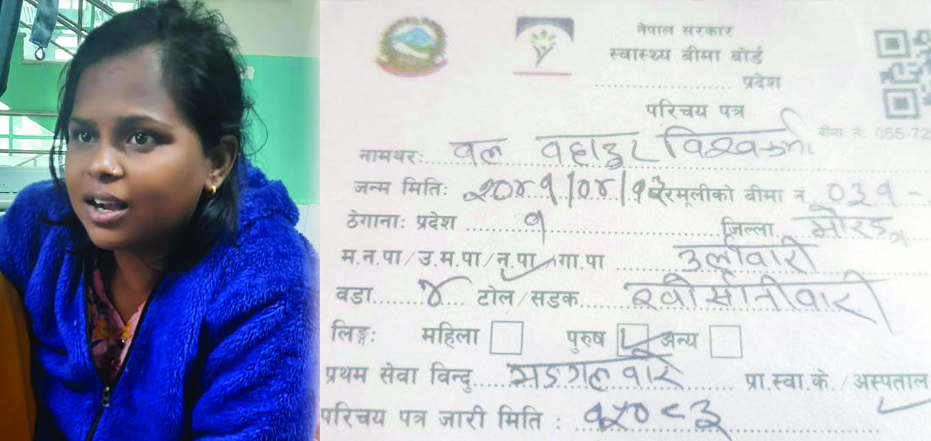 नेपाल सरकार
स्वास्थ्य बीमा बोर्ड
.................... प्रदेश
परिचय पत्र
बीमा नं: 055-72
नामथर: वल वहादुर विश्वकर्मा
जन्म मिति: २०४१/०४/१३ घरमूलीको बीमा नं. ०३१-
ठेगाना: प्रदेश १ जिल्ला मोरङ
म.न.पा/उ.म.पा/न.पा/गा.पा उर्लावारी
वडा ४ टोल/सडक
लिङ्ग: महिला पुरुष अन्य
प्रथम सेवा विन्दु मङगलवारे प्रा.स्वा.के./अस्पताल
परिचय पत्र जारी मिति :